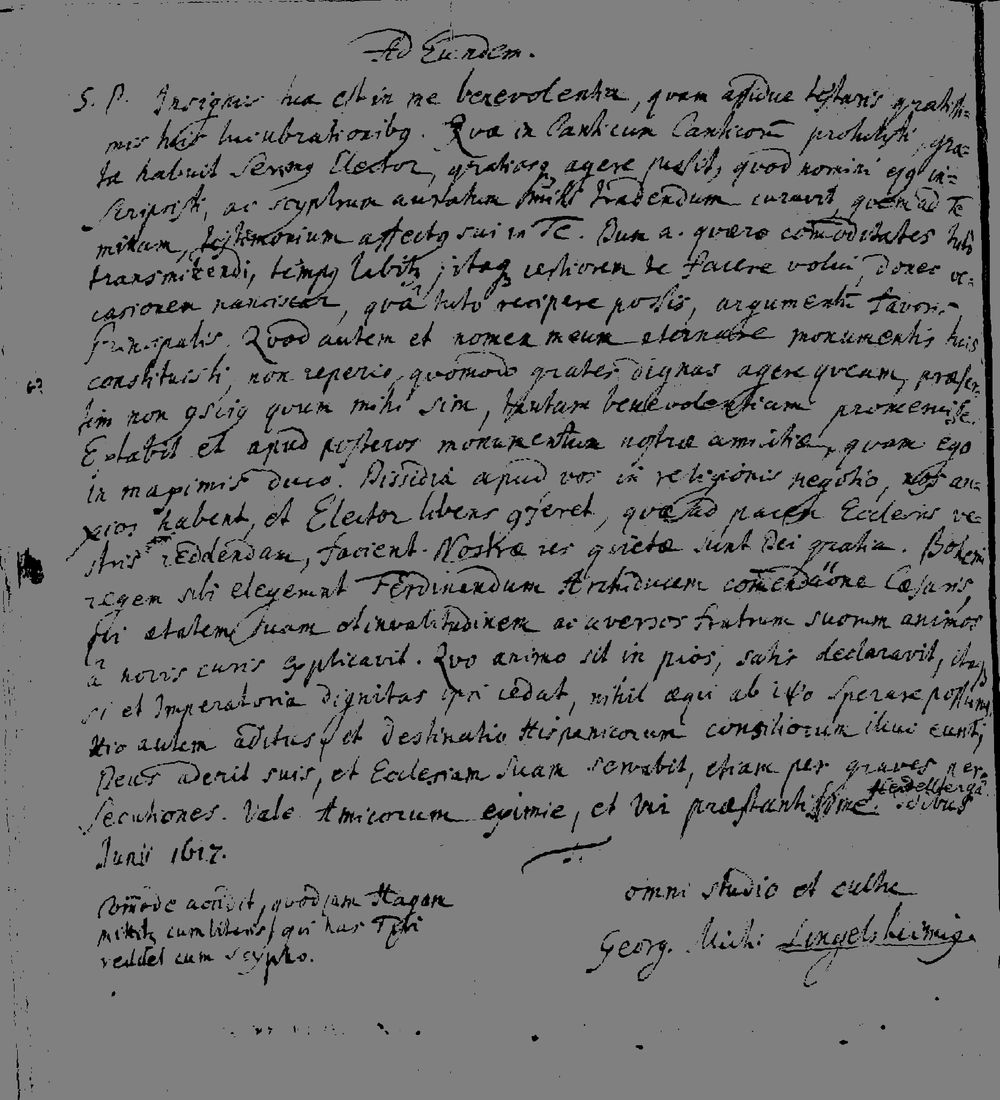 Ad Eundem.
S. P. Insignis tua est in me benevolentia, quam assidue testaris gratissi-
mis tuis lucubrationibq. Quæ in Canticum Canticorū protulisti, gra-
ta habuit Serenmq Elector, gratiasq agere jussit, quod nomini ejq in-
scripsisti, ac scyphum auratum mihi tradendum curavit, quem ad Te
mittam, testimonium affectq sui in Te. Dum a. quæro comoditates tuto
transmittendi, tempq labitr, itaq certiorem te facere volui, donec oc-
casionem nanciscar, quâ tuto recipere possis, argumentū favoris
Principalis. Quod autem et nomen meum æternare monumentis tuis
constituisti, non reperio, quomodo grates dignas agere queam, præser-
tim non gsciq quum mihi sim, tantam benevolentiam promeruisse.
Extabit et apud posteros monumentum nostræ amicitiæ, quam ego
in maximis duco. Dissidia apud vos in religionis negotio, nos an-
xios habent, et Elector libens gferet, quæ ad pacem Ecclesiis ve-
stris reddendam, facient. Nostræ res quietæ sunt Dei gratia. Bohemi
regem sibi elegerunt Ferdinandum Archiducem comendatione Cæsaris,
qui ætatem suam et invalitudinem ac aversos fratrum suorum animos
à novis curis explicavit. Quo animo sit in pios, satis declaravit, itaq
si et Imperatoria dignitas ipsi cedat, nihil æqui ab illo sperare possumq,
Hio autem aditus, et destinatio Hispanicorum consiliorum illuc eunt,
Deus aderit suis, et Ecclesiam suam servabit, etiam per graves per-
secutiones. Vale Amicorum eximie, et vir præstantissime. Heidelbergâ
Idibus
Junii 1617.
Comode accidit, quod jam Hagam
mittitr cum literis, qui has Tibi
reddet cum scypho.
omni studio et cultu
Georg. Mich. Lingelsheimiq.